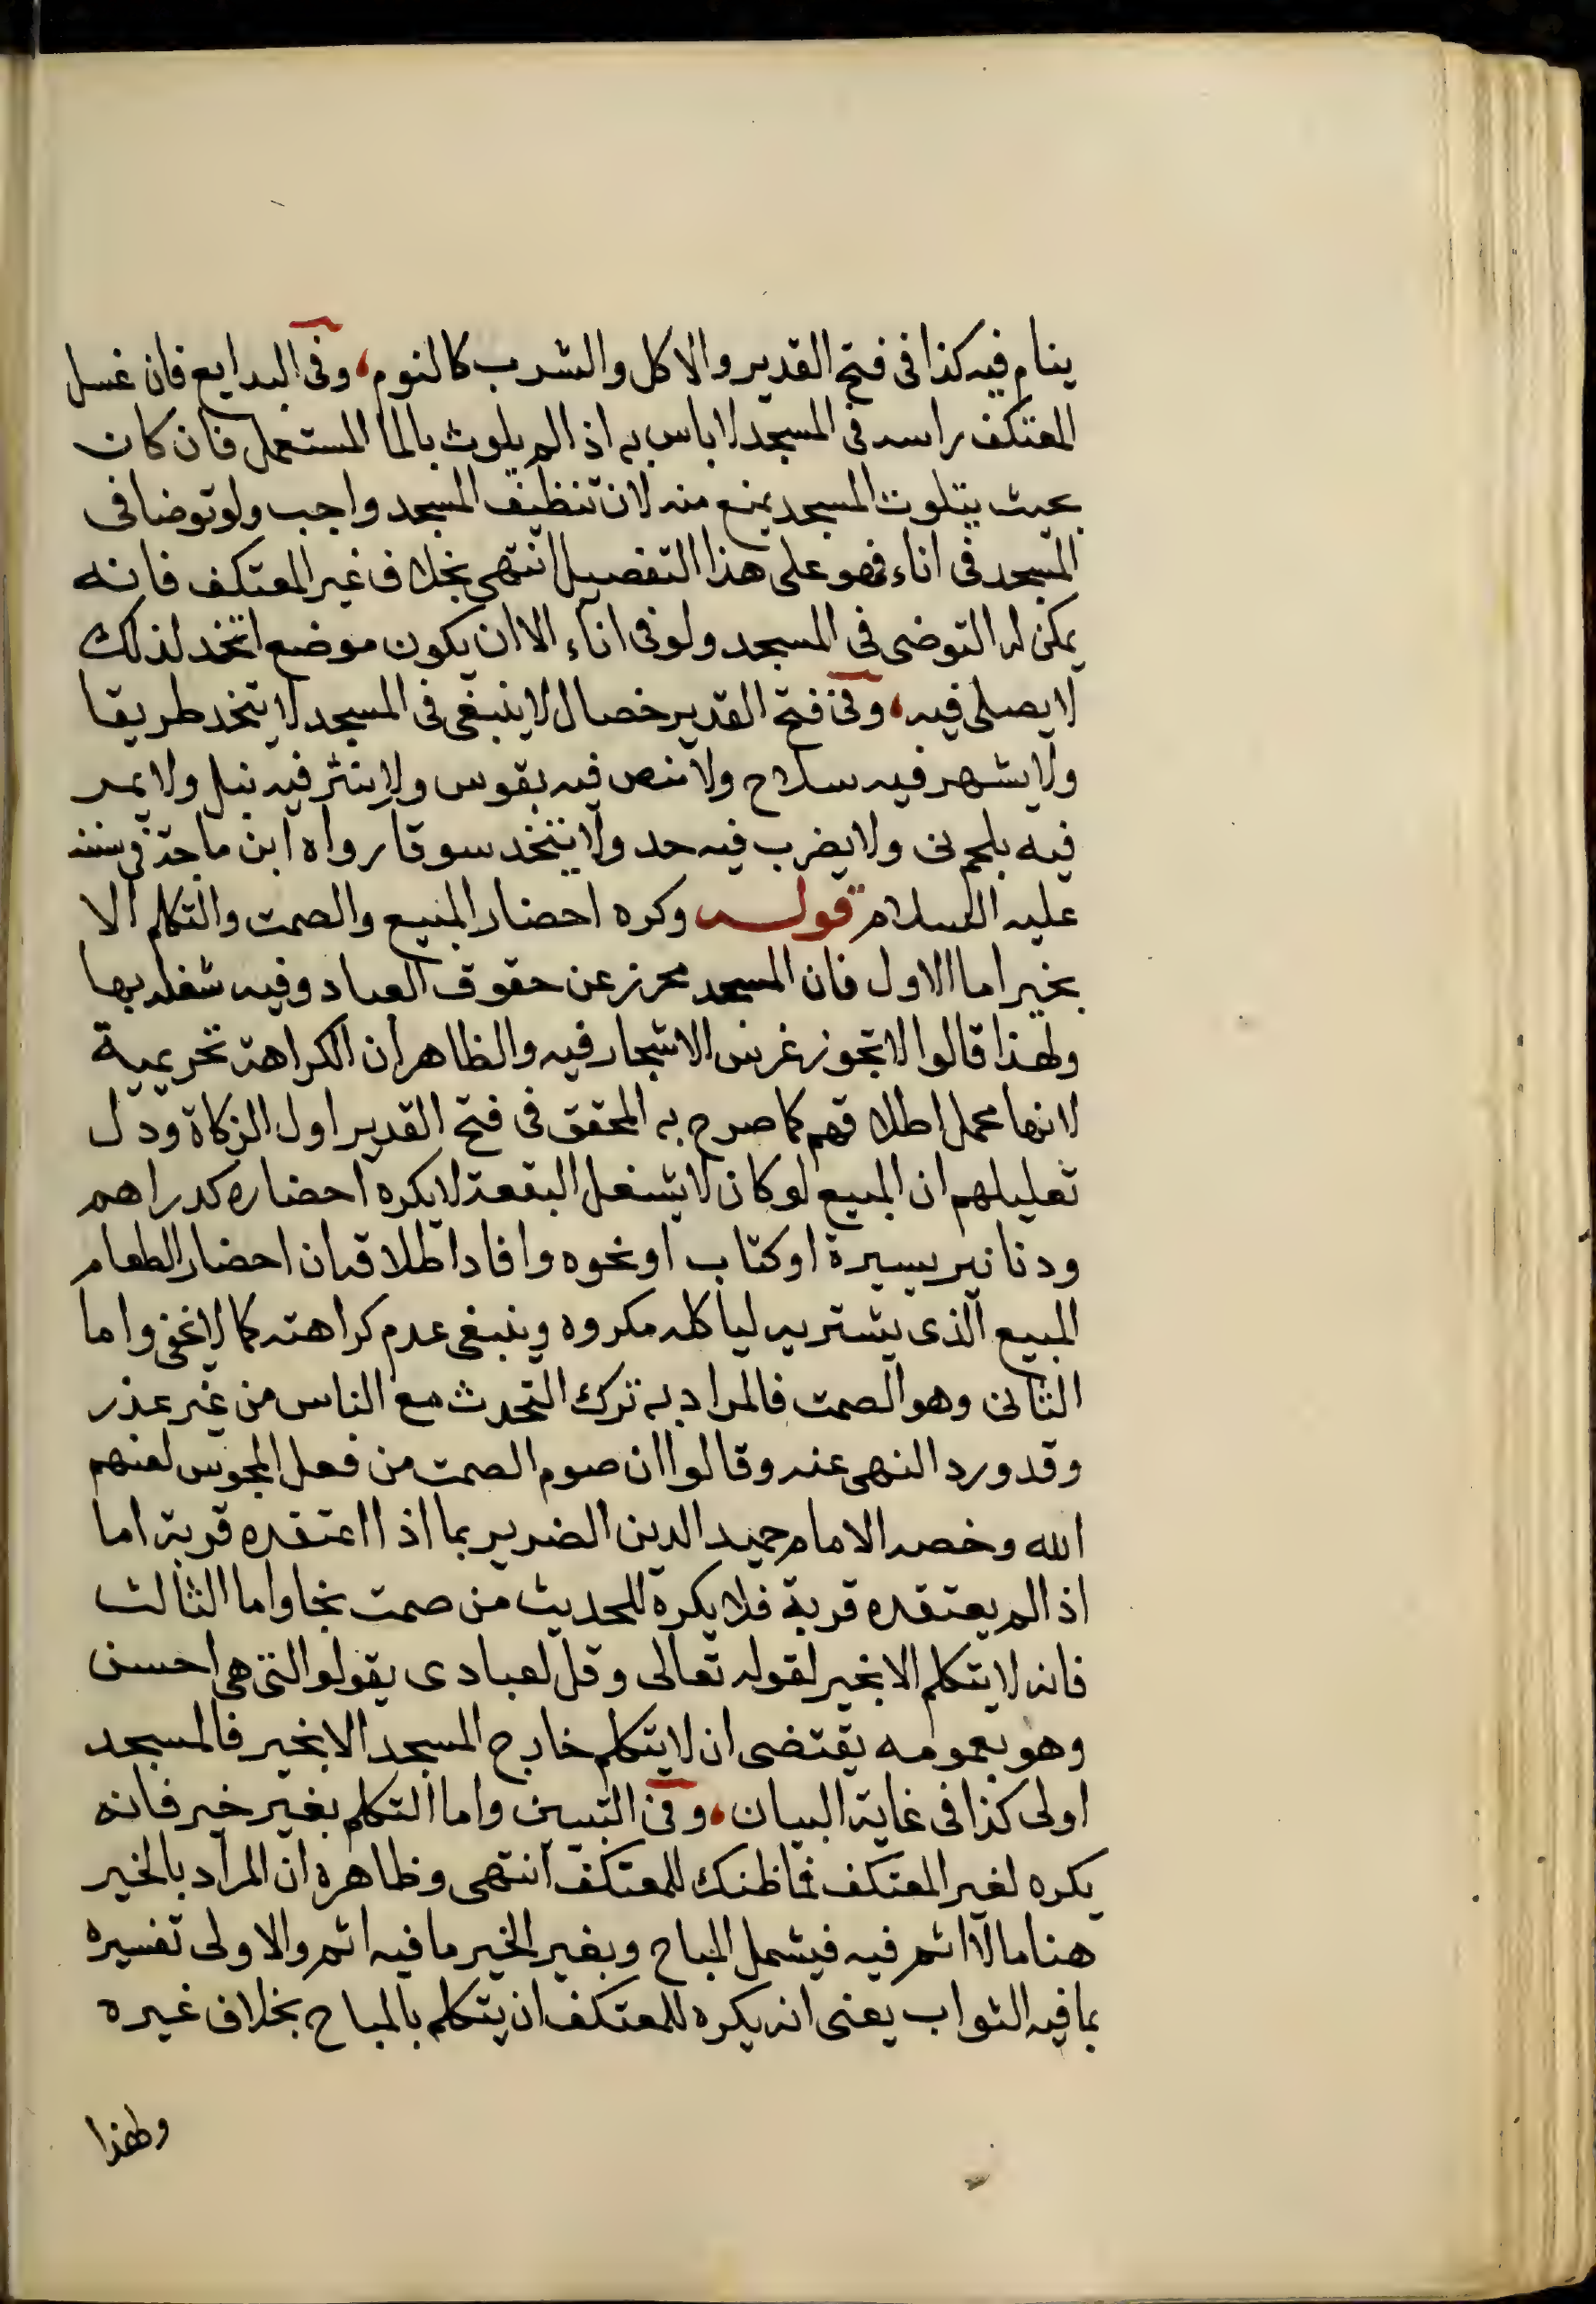 ينام فيه كذا في فتح القدير والاكل والشرب كالنوم، وفي البدايع فان غسل
المعتكف راسه في المسجد لا باس به اذا لم يلوث بالما المستعمل فان كان
بحيث يتلوث المسجد يمنع منه لان تنظيف المسجد واجب ولو توضا في
المسجد في اناء فهو على هذا التفصيل انتهى بخلاف غير المعتكف فانه
يمكن له التوضى في المسجد ولو في اناء الا ان يكون موضع اتخد لذلك
لا يصلى فيه، وفي فتح القدير خصال لا ينبغي في المسجد لا يتخد طريقا
ولا يشهر فيه سلاح ولا ينص فيه بقوس ولا ينثر فيه نبل ولا يمر
فيه بلحم نى ولا يضرب فيه حد ولا يتخد سوقا رواه ابن ماجة في سننه
عليه السلام قوله وكره احضار المبيع والصمت والتكلم الا
بخير اما الاول فان المسجد محرز عن حقوق العباد وفيه شغله بها
ولهذا قالوا لا تجوز غرس الاشجار فيه والظاهر ان الكراهة تحريمية
لانها محمل اطلاقهم كما صرح به المحقق في فتح القدير اول الزكاة ودل
تعليلهم ان المبيع لو كان لا يشغل البقعة لا يكره احضاره كدراهم
ودنانير يسيرة او كتاب او نحوه وافاد اطلاقه ان احضار الطعام
المبيع الذى يشتريه لياكله مكروه وينبغى عدم كراهته كما لا يخفى واما
الثانى وهو الصمت فالمراد به ترك التحدث مع الناس من غير عذر
وقد ورد النهى عنه وقالوا ان صوم الصمت من فعل المجوس لعنهم
الله وخصه الامام حميد الدين الضرير بما اذا اعتقده قربة اما
اذا لم يعتقده قربة فلا يكره للحديث من صمت نجا واما الثالث
فانه لا يتكلم الا بخير لقوله تعالى وقل لعبادى يقولو التى هى احسن
وهو بعمومه يقتضى ان لا يتكلم خارج المسجد الا بخير فالمسجد
اولى كذا فى غاية البيان، وفي التبيين واما التكلم بغير خير فانه
يكره لغير المعتكف فما ظنك للمعتكف انتهى وظاهره ان المراد بالخير
هنا ما لا اثم فيه فيشمل المباح وبغير الخير ما فيه اثم والاولى تفسيره
بما فيه الثواب يعنى انه يكره للمعتكف ان يتكلم بالمباح بخلاف غيره
ولهذا